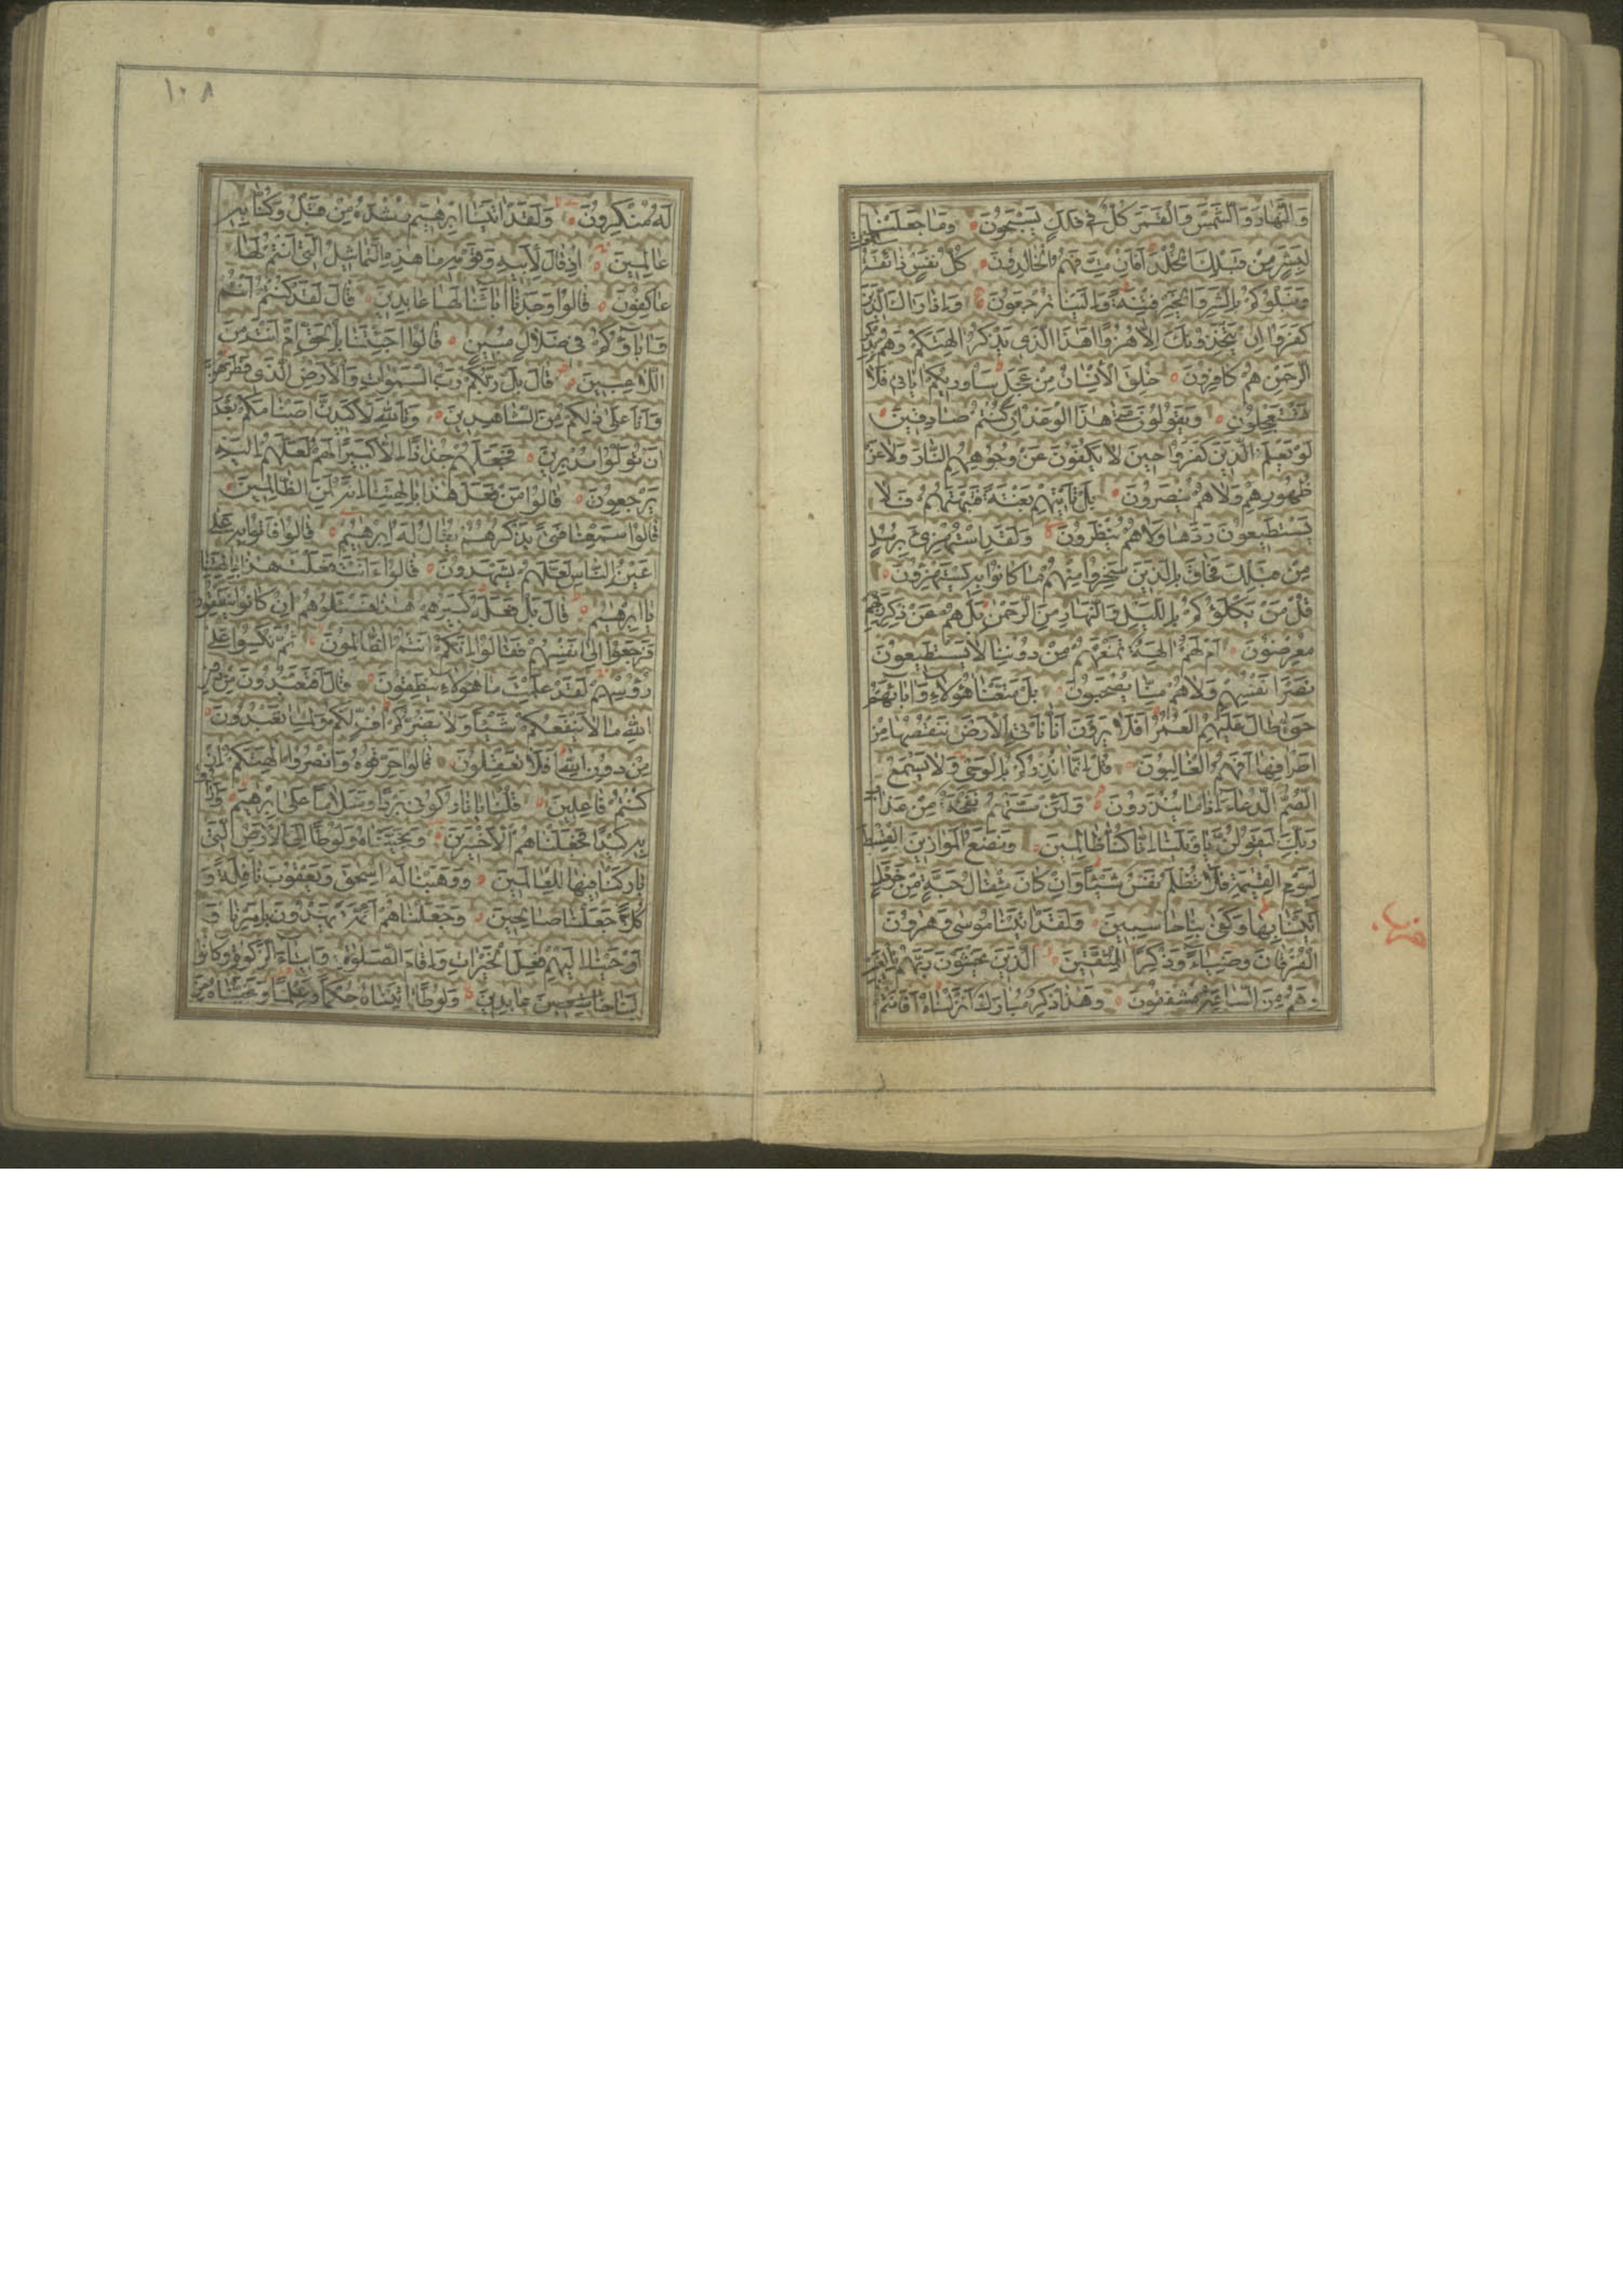 وَالنَّهَارَ وَالشَّمْسَ وَالْقَمَرَ كُلٌّ فِي فَلَكٍ يَسْبَحُونَ وَمَا جَعَلْنَا
لِبَشَرٍ مِنْ قَبْلِكَ الْخُلْدَ اَفَاِنْ مِتَّ فَهُمُ الْخَالِدُونَ كُلُّ نَفْسٍ ذَائِقَةُ الْمَوْتِ
وَنَبْلُوكُمْ بِالشَّرِّ وَالْخَيْرِ فِتْنَةً وَاِلَيْنَا تُرْجَعُونَ وَاِذَا رَاٰكَ الَّذِينَ
كَفَرُوا اِنْ يَتَّخِذُونَكَ اِلَّا هُزُوًا اَهٰذَا الَّذِي يَذْكُرُ اٰلِهَتَكُمْ وَهُمْ بِذِكْرِ
الرَّحْمٰنِ هُمْ كَافِرُونَ خُلِقَ الْاِنْسَانُ مِنْ عَجَلٍ سَاُورِيكُمْ اٰيَاتِي فَلَا
تَسْتَعْجِلُونِ وَيَقُولُونَ مَتٰى هٰذَا الْوَعْدُ اِنْ كُنْتُمْ صَادِقِينَ
لَوْ يَعْلَمُ الَّذِينَ كَفَرُوا حِينَ لَا يَكُفُّونَ عَنْ وُجُوهِهِمُ النَّارَ وَلَا عَنْ
ظُهُورِهِمْ وَلَا هُمْ يُنْصَرُونَ بَلْ تَاْتِيهِمْ بَغْتَةً فَتَبْهَتُهُمْ فَلَا
يَسْتَطِيعُونَ رَدَّهَا وَلَا هُمْ يُنْظَرُونَ وَلَقَدِ اسْتُهْزِئَ بِرُسُلٍ
مِنْ قَبْلِكَ فَحَاقَ بِالَّذِينَ سَخِرُوا مِنْهُمْ مَا كَانُوا بِهِ يَسْتَهْزِؤُنَ
قُلْ مَنْ يَكْلَؤُكُمْ بِاللَّيْلِ وَالنَّهَارِ مِنَ الرَّحْمٰنِ بَلْ هُمْ عَنْ ذِكْرِ رَبِّهِمْ
مُعْرِضُونَ اَمْ لَهُمْ اٰلِهَةٌ تَمْنَعُهُمْ مِنْ دُونِنَا لَا يَسْتَطِيعُونَ
نَصْرَ اَنْفُسِهِمْ وَلَا هُمْ مِنَّا يُصْحَبُونَ بَلْ مَتَّعْنَا هٰؤُلَاءِ وَاٰبَاءَهُمْ
حَتّٰى طَالَ عَلَيْهِمُ الْعُمُرُ اَفَلَا يَرَوْنَ اَنَّا نَاْتِي الْاَرْضَ نَنْقُصُهَا مِنْ
اَطْرَافِهَا اَفَهُمُ الْغَالِبُونَ قُلْ اِنَّمَا اُنْذِرُكُمْ بِالْوَحْيِ وَلَا يَسْمَعُ
الصُّمُّ الدُّعَاءَ اِذَا مَا يُنْذَرُونَ وَلَئِنْ مَسَّتْهُمْ نَفْحَةٌ مِنْ عَذَابِ
رَبِّكَ لَيَقُولُنَّ يَا وَيْلَنَا اِنَّا كُنَّا ظَالِمِينَ وَنَضَعُ الْمَوَازِينَ الْقِسْطَ
لِيَوْمِ الْقِيٰمَةِ فَلَا تُظْلَمُ نَفْسٌ شَيْئًا وَاِنْ كَانَ مِثْقَالَ حَبَّةٍ مِنْ خَرْدَلٍ
اَتَيْنَا بِهَا وَكَفٰى بِنَا حَاسِبِينَ وَلَقَدْ اٰتَيْنَا مُوسٰى وَهٰرُونَ
الْفُرْقَانَ وَضِيَاءً وَذِكْرًا لِلْمُتَّقِينَ الَّذِينَ يَخْشَوْنَ رَبَّهُمْ بِالْغَيْبِ
وَهُمْ مِنَ السَّاعَةِ مُشْفِقُونَ وَهٰذَا ذِكْرٌ مُبَارَكٌ اَنْزَلْنَاهُ اَفَاَنْتُمْ
١٠٨
لَهُ مُنْكِرُونَ وَلَقَدْ اٰتَيْنَا اِبْرٰهِيمَ رُشْدَهُ مِنْ قَبْلُ وَكُنَّا بِهِ
عَالِمِينَ اِذْ قَالَ لِاَبِيهِ وَقَوْمِهِ مَا هٰذِهِ التَّمَاثِيلُ الَّتِي اَنْتُمْ لَهَا
عَاكِفُونَ قَالُوا وَجَدْنَا اٰبَاءَنَا لَهَا عَابِدِينَ قَالَ لَقَدْ كُنْتُمْ اَنْتُمْ
وَاٰبَاؤُكُمْ فِي ضَلَالٍ مُبِينٍ قَالُوا اَجِئْتَنَا بِالْحَقِّ اَمْ اَنْتَ مِنَ
اللَّاعِبِينَ قَالَ بَلْ رَبُّكُمْ رَبُّ السَّمٰوَاتِ وَالْاَرْضِ الَّذِي فَطَرَهُنَّ
وَاَنَا عَلٰى ذٰلِكُمْ مِنَ الشَّاهِدِينَ وَتَاللّٰهِ لَاَكِيدَنَّ اَصْنَامَكُمْ بَعْدَ
اَنْ تُوَلُّوا مُدْبِرِينَ فَجَعَلَهُمْ جُذَاذًا اِلَّا كَبِيرًا لَهُمْ لَعَلَّهُمْ اِلَيْهِ
يَرْجِعُونَ قَالُوا مَنْ فَعَلَ هٰذَا بِاٰلِهَتِنَا اِنَّهُ لَمِنَ الظَّالِمِينَ
قَالُوا سَمِعْنَا فَتًى يَذْكُرُهُمْ يُقَالُ لَهُ اِبْرٰهِيمُ قَالُوا فَاْتُوا بِهِ عَلٰى
اَعْيُنِ النَّاسِ لَعَلَّهُمْ يَشْهَدُونَ قَالُوا ءَاَنْتَ فَعَلْتَ هٰذَا بِاٰلِهَتِنَا
يَا اِبْرٰهِيمُ قَالَ بَلْ فَعَلَهُ كَبِيرُهُمْ هٰذَا فَسْئَلُوهُمْ اِنْ كَانُوا يَنْطِقُونَ
فَرَجَعُوا اِلٰى اَنْفُسِهِمْ فَقَالُوا اِنَّكُمْ اَنْتُمُ الظَّالِمُونَ ثُمَّ نُكِسُوا عَلٰى
رُؤُسِهِمْ لَقَدْ عَلِمْتَ مَا هٰؤُلَاءِ يَنْطِقُونَ قَالَ اَفَتَعْبُدُونَ مِنْ دُونِ
اللّٰهِ مَا لَا يَنْفَعُكُمْ شَيْئًا وَلَا يَضُرُّكُمْ اُفٍّ لَكُمْ وَلِمَا تَعْبُدُونَ
مِنْ دُونِ اللّٰهِ اَفَلَا تَعْقِلُونَ قَالُوا حَرِّقُوهُ وَانْصُرُوا اٰلِهَتَكُمْ اِنْ
كُنْتُمْ فَاعِلِينَ قُلْنَا يَا نَارُ كُونِي بَرْدًا وَسَلَامًا عَلٰى اِبْرٰهِيمَ وَاَرَادُوا
بِهِ كَيْدًا فَجَعَلْنَاهُمُ الْاَخْسَرِينَ وَنَجَّيْنَاهُ وَلُوطًا اِلَى الْاَرْضِ الَّتِي
بَارَكْنَا فِيهَا لِلْعَالَمِينَ وَوَهَبْنَا لَهُ اِسْحٰقَ وَيَعْقُوبَ نَافِلَةً وَ
كُلًّا جَعَلْنَا صَالِحِينَ وَجَعَلْنَاهُمْ اَئِمَّةً يَهْدُونَ بِاَمْرِنَا وَ
اَوْحَيْنَا اِلَيْهِمْ فِعْلَ الْخَيْرَاتِ وَاِقَامَ الصَّلٰوةِ وَاِيتَاءَ الزَّكٰوةِ وَكَانُوا
لَنَا عَابِدِينَ وَلُوطًا اٰتَيْنَاهُ حُكْمًا وَعِلْمًا وَنَجَّيْنَاهُ مِنَ